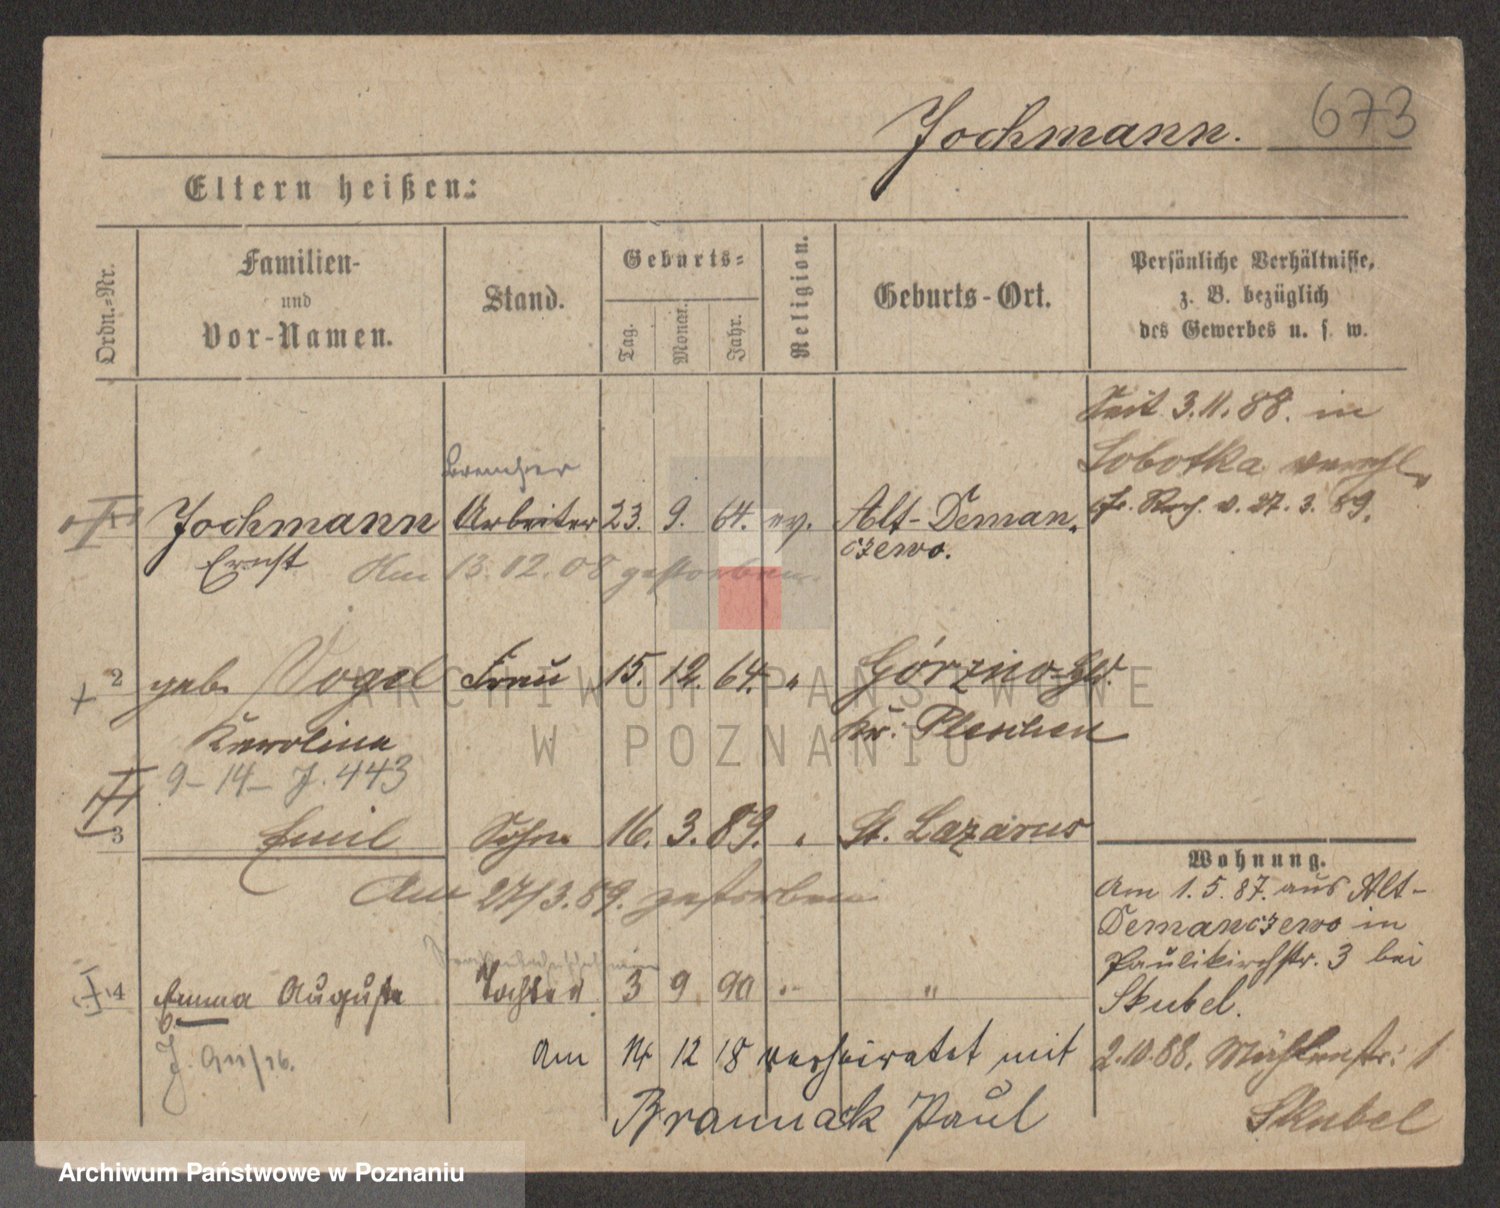 673
Jochmann.
Eltern heißen:
Ordn.-Nr.
Familien-
und
Vor-Namen.
Stand.
Geburts-
Tag.
Monat.
Jahr.
Religion.
Geburts-Ort.
Persönliche Verhältnisse,
z. B. bezüglich
des Gewerbes u. s. w.
Seit 3.11.88. in
Sobotka
v. 27. 3. 89.
Bremser
1 Jochmann Arbeiter 23. 9. 64. ev. Alt-Deman-
Ernst czewo.
Am 13.02.08 gestorben.
2 geb. Vogel Frau 15. 12. 64. " Górzno
Karolina Kr. Pleschen
9-14- J. 443
3 Emil Sohn 16. 3. 89. " St. Lazarus
Am 27/3.89. gestorben
4 Emma Auguste Tochter 3 9 90 " "
Am 12 18 verheiratet mit
Brannack Paul
Wohnung.
Am 1.5.87. aus Alt-
Demanczewo in
Paulikirchstr. 3 bei
Skubel.
2.10.88. Mühlenstr. 1
Skubel
ARCHIWUM PAŃSTWOWE
W POZNANIU
Archiwum Państwowe w Poznaniu